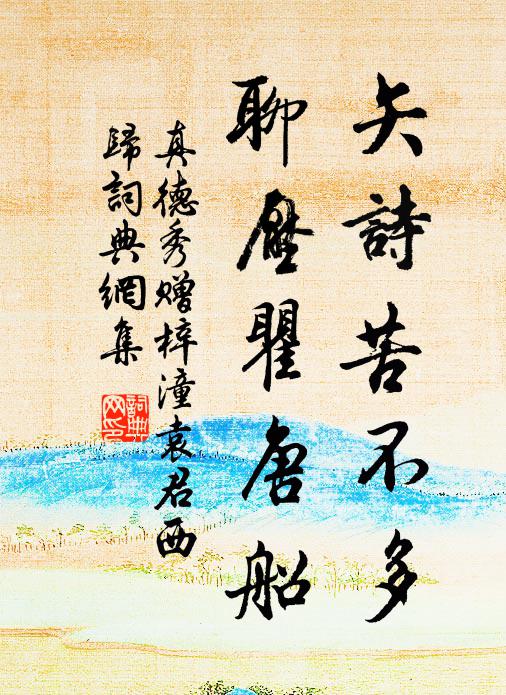 矢詩苦不多
聊壓瞿唐船
真德秀贈梓潼袁君西
歸詞典網集
詞典
網印